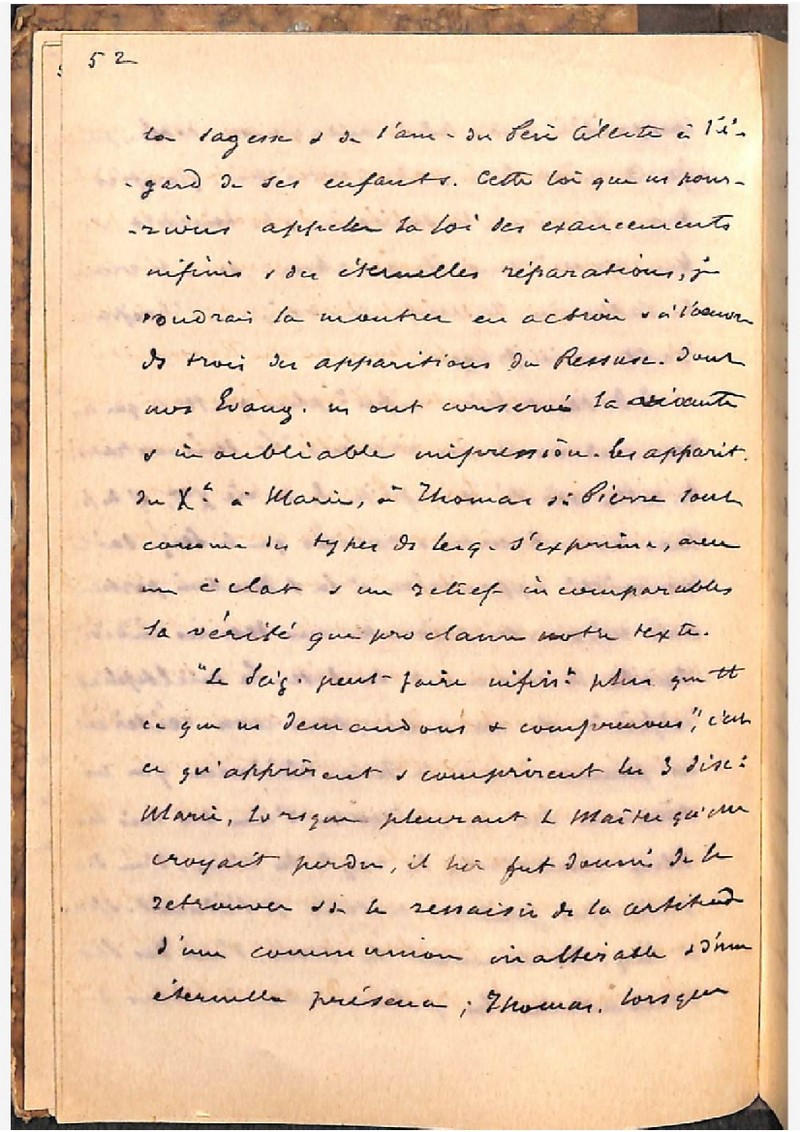 52
la sagesse & de l'am. du Père Céleste à l'é-
-gard de ses enfants. Cette loi que ns pour-
-rions appeler la loi des exaucements
infinis & des éternelles réparations, je
voudrais la montrer en action & à l'œuvre
ds trois des apparitions du Ressusc. dont
nos Evang. ns ont conservé la vivante
& inoubliable impression. Les apparit.
du Xt à Marie, à Thomas & à Pierre sont
comme des types ds lesq. s'exprime, avec
un éclat & un relief incomparables
la vérité que proclame notre texte.
"Le Seig. peut faire infint plus que tt
ce que ns demandons & comprenons", c'est
ce qu'apprirent & comprirent les 3 disc:
Marie, lorsque pleurant le Maître qu'elle
croyait perdu, il lui fut donné de le
retrouver & de le ressaisir ds la certitude
d'une communion inaltérable & d'une
éternelle présence ; Thomas, lorsque